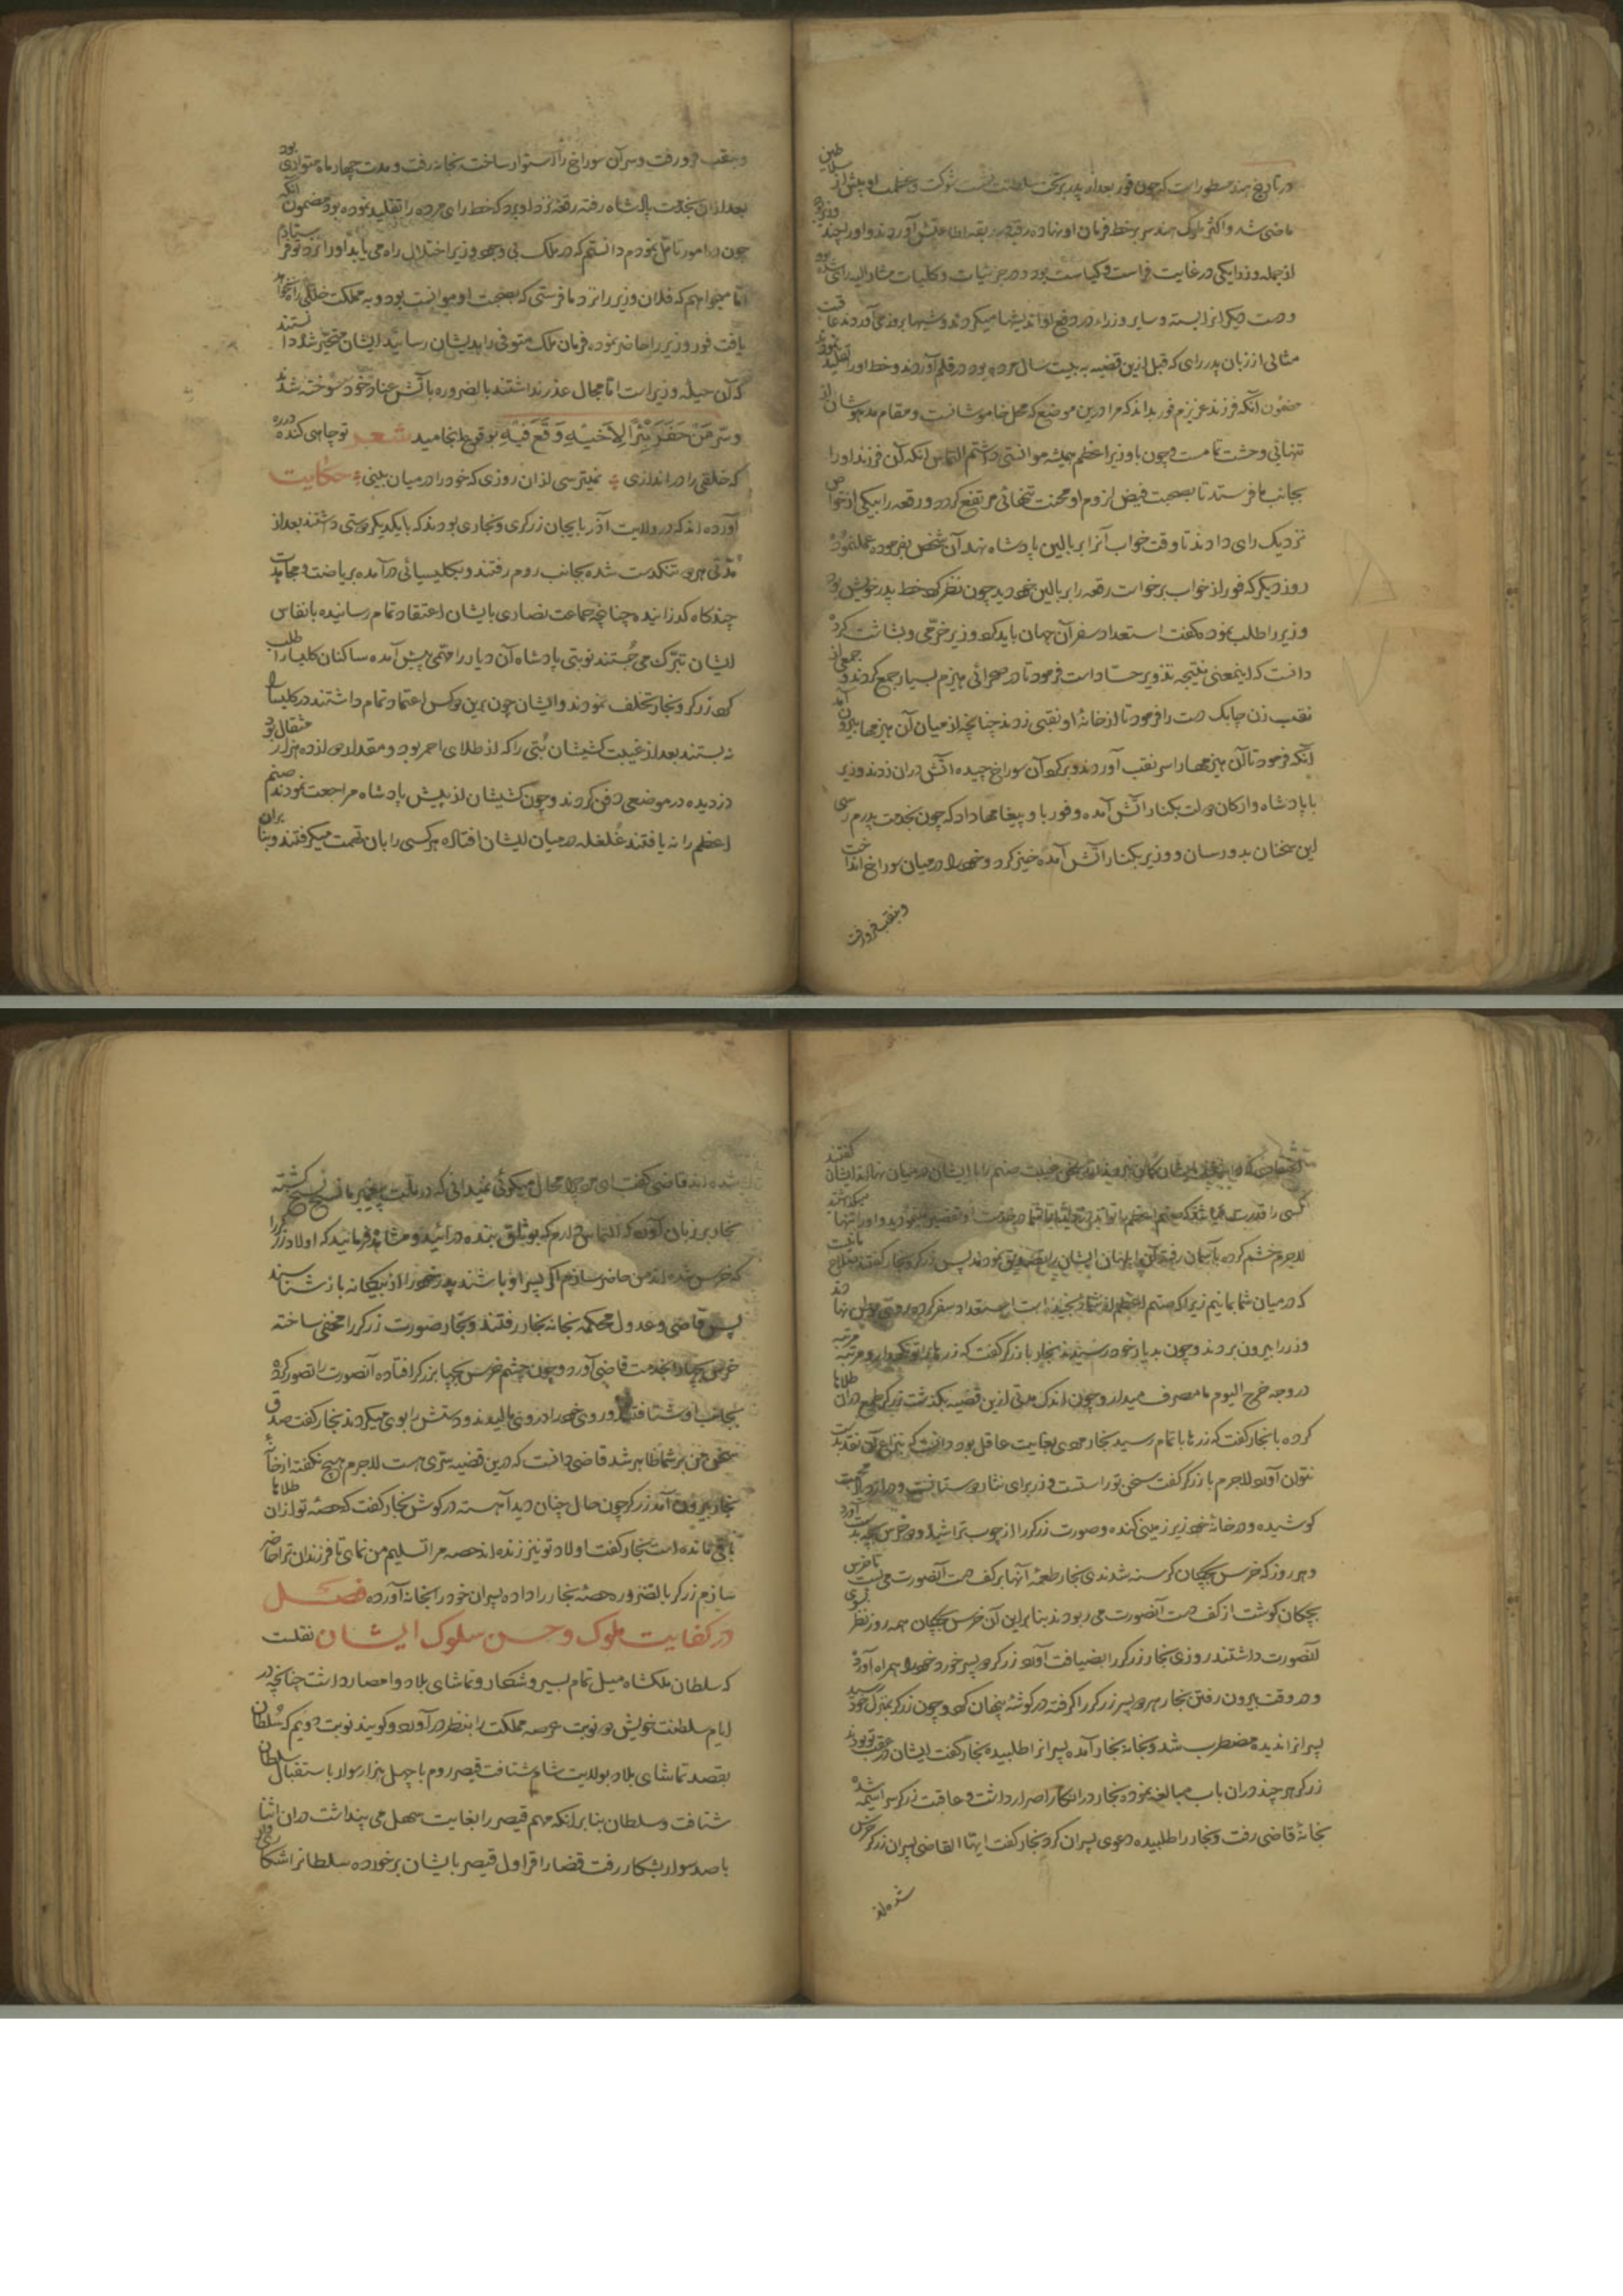 در تاریخ هند مسطور است که چون فور بعد از پدر بر تخت سلطنت نشست شوکت و عظمت او بیش از سلاطین
ماضی شد و اکثر ملوک هند سر بر خط فرمان او نهاده رقبه در ربقه اطاعتش آوردند و او را چند وزیر بود
از جمله وزرا یکی در غایت فراست و کیاست بود و در جزئیات و کلیات مشار الیه رای شده بود
و دست دیگرانرا بسته و سایر وزراء در دفع او اندیشها میکردند و شبها بروز می آوردند عاقبت
مثالی از زبان پدر رای که قبل ازین قضیه به بیست سال مرده بود در قلم آوردند و خط او را تقلید نمودند
مضمون آنکه فرزند عزیزم فور بداند که مرا درین موضع که محل خاموشانست و مقام مدهوشان از
تنهائی وحشت تمامست و چون با وزیر اعظم همیشه موانستی داشتم التماس آنکه آن فرزند او را
بجانب ما فرستد تا بصحبت فیض لزوم او محنت تنهائی مرتفع کردد و رقعه را بیکی از خواص
نزدیک رای دادند تا وقت خواب آنرا بر بالین پادشاه نهد آن شخص بفرموده عمل نمود
روز دیگر که فور از خواب برخواست رقعه را بر بالین خود دید چون نظر کرد خط پدر خویش بود
وزیر را طلب نموده گفت استعداد سفر آن جهان باید کرد وزیر خرّمی و بشاشت کرده
دانست که اینمعنی نتیجه تذویر حسّاد است فرمود تا در صحرائی هیزم بسیار جمع کردند و جمعی از
نقب زن چابک دست را فرمود تا از خانهٔ او نقبی زدند چنانچه از میان آن هیزمها بیرون آمد
آنکه فرمود تا آن هیزمها را سر نقب آوردند و برکرد آن سوراخ چیده آتش دران زدند وزیر
با پادشاه و ارکان دولت بکنار آتش آمده و فور با و پیغامها داد که چون بخدمت پدرم رسی
این سخنان بدو رسان و وزیر بکنار آتش آمده خیز کرد و خود را در میان سوراخ انداخت
و بنقب فرو رفت
و بنقب فرو رفت و سر آن سوراخ را استوار ساخت بخانه رفت و مدت چهار ماه متواری بود
بعد از آن بخدمت پادشاه رفته رقعهٔ نزد او برد که خط رای مرده را تقلید نموده بود مضمون آنکه
چون در امور تامّل نمودم دانستم که در ملک بی وجود وزیر اختلال راه می یابد او را نزد تو فرستادم
امّا میخواهم که فلان وزیر را نزد ما فرستی که بصحبت او موانست بود و به مملکت خللی راه نخواهد
یافت فور وزیر را حاضر نموده فرمان ملک متوفی را بدیشان رسانید ایشان متحیّر شده دانستند
که آن حیلهٔ وزیر است امّا مجال عذر نداشتند بالضروره بآتش عناد خود سوخته شدند
و سرّ مَنْ حَفَرَ بِئْراً لِاَخیهِ وَقَعَ فیهِ بوقوع انجامید شعر تو چاهی کندهٔ در ره
که خلقی را در اندازی نمیترسی از ان روزی که خود را در میان بینی حکایت
آورده اند که در ولایت آذربایجان زرکری و نجاری بودند که با یکدیکر دوستی داشتند بعد از
مدّتی هر دو تنکدست شده بجانب روم رفتند و بکلیسیائی در آمده بریاضت و مجاهدت
چندکاه کذرانیده چنانچه جماعت نصاری بایشان اعتقاد تمام رسانیده بانفاس
ایشان تبرّک می جُستند نوبتی پادشاه آن دیار را ختمی پیش آمده ساکنان کلیسا را طلب
کرد زرکر و نجار تخلف نمودند و ایشان چون برین دو کس اعتماد تمام داشتند در کلیسا را
نه بستند بعد از غیبت کشیشان بُتی را که از طلای احمر بود و مقدار او از ده هزار مثقال بود
دزدیده در موضعی دفن کردند و چون کشیشان از پیش پادشاه مراجعت نمودند صنم
اعظم را نه یافتند غُلغله در میان ایشان افتاده هر کسی را بان تهمت میکرفتند و بنا بران
صنم را با ایشان در میان نهادند ایشان گفتند
کسی را قدرت
لاجرم خشم کرده بآسمان رفت ان ابلهان ایشان را تصدیق نمودند پس زرکر و نجار گفتند
که در میان شما بمانیم زیرا که صنم اعظم از شما رنجیده است استعداد سفر کرده
و زر را بیرون بردند و چون بدیار خود رسیدند نجار با زرکر گفت که زرها را تو نکهدار و مرتبه مرتبه
در وجه خرج الیوم ما مصرف میدار و چون اندک مدتی ازین قضیه بکذشت زرکر طمع دران طلاها
کرده با نجار گفت که زرها باتمام رسید نجار مردی بغایت عاقل بود دانست که بنزاع آن نقد بدست
نتوان آورد لاجرم با زرکر گفت سخن تو راستست و زر برای نثار دوستانست و در ازدیاد محبت
کوشیده و در خانهٔ خود زیر زمینی کنده و صورت زرکر را از چوب تراشید و دو خرس بچه بدست آورد
و هر روز که خرس بچکان کرسنه شدندی نجار طعمهٔ آنها بر کف دست آنصورت می بست تا خرس
بچکان کوشت از کف دست آنصورت می ربودند بنا براین آن خرس بچکان همه روز نظر بروی
آنصورت داشتند روزی نجار زرکر را بضیافت آورد زرکر دو پسر خورد خود را همراه آورد
و در وقت بیرون رفتن نجار هر دو پسر زرکر را کرفته در کوشهٔ پنهان کرد و چون زرکر بمنزل خود رسید
پسرانرا ندیده مضطرب شد و بخانه نجار آمده پسرانرا طلبیده نجار گفت ایشان در عقب تو بودند
زرکر هر چند دران باب مبالغه نموده نجار در انکار اصرار داشت و عاقبت زرکر سراسیمه شده
بخانهٔ قاضی رفت و نجار را طلبیده دعوی پسران کرد نجار گفت ایهّا القاضی پسران زرکر خرس
شده اند
شده اند قاضی گفت ای مرد چرا محال میکوئی نمیدانی که در ملت پیغمبر ما نسخ و مسخ نسخ گشته
نجار بر زبان آورد که التماس دارم که بوثاق بنده در آئید و مشاهده فرمائید که اولاد زرکر را
که خرس شده اند من حاضر سازم اگر پسر او باشند پدر خود را از بیکانه باز شناسند
پس قاضی و عدول محکمه بخانهٔ نجار رفتند و نجار صورت زرکر را مخفی ساخته
خرس بچها را بخدمت قاضی آورد و چون چشم خرس بچها بزرکر افتاده آنصورت را تصور کرده
بجانب او شتافتند و روی خود را در وی مالیدند و دستش را بوی میکردند نجار گفت صدق
سخن من بر شما ظاهر شد قاضی دانست که درین قضیه سرّی هست لاجرم هیچ نکفته از خانهٔ
نجار بیرون آمد زرکر چون حال چنان دید آهسته در کوش نجار گفت که حصّهٔ تو از ان طلاها
باقی مانده است نجار گفت اولاد تو نیز زنده اند حصه مرا تسلیم من نمای تا فرزندان ترا حاضر
سازم زرکر بالضروره حصّهٔ نجار را داده پسران خود را بخانه آورده فصل
در کفایت ملوک و حسن سلوک ایشان نقلست
که سلطان ملکشاه میل تمام بسیر و شکار و تماشای بلاد و امصار داشت چنانچه در
ایام سلطنت خویش دو نوبت عرصه مملکت را بنظر در آورد و کویند نوبت دویم که سُلطان
بقصد تماشای بلاد بولایت شام شتافت قیصر روم با چهل هزار سوار باستقبال سلطان
شتافت و سلطان بنا بر انکه مهم قیصر را بغایت سهل می پنداشت دران اثنا
با صد سوار بشکار رفت قضا را قراول قیصر بایشان برخورده سلطانرا